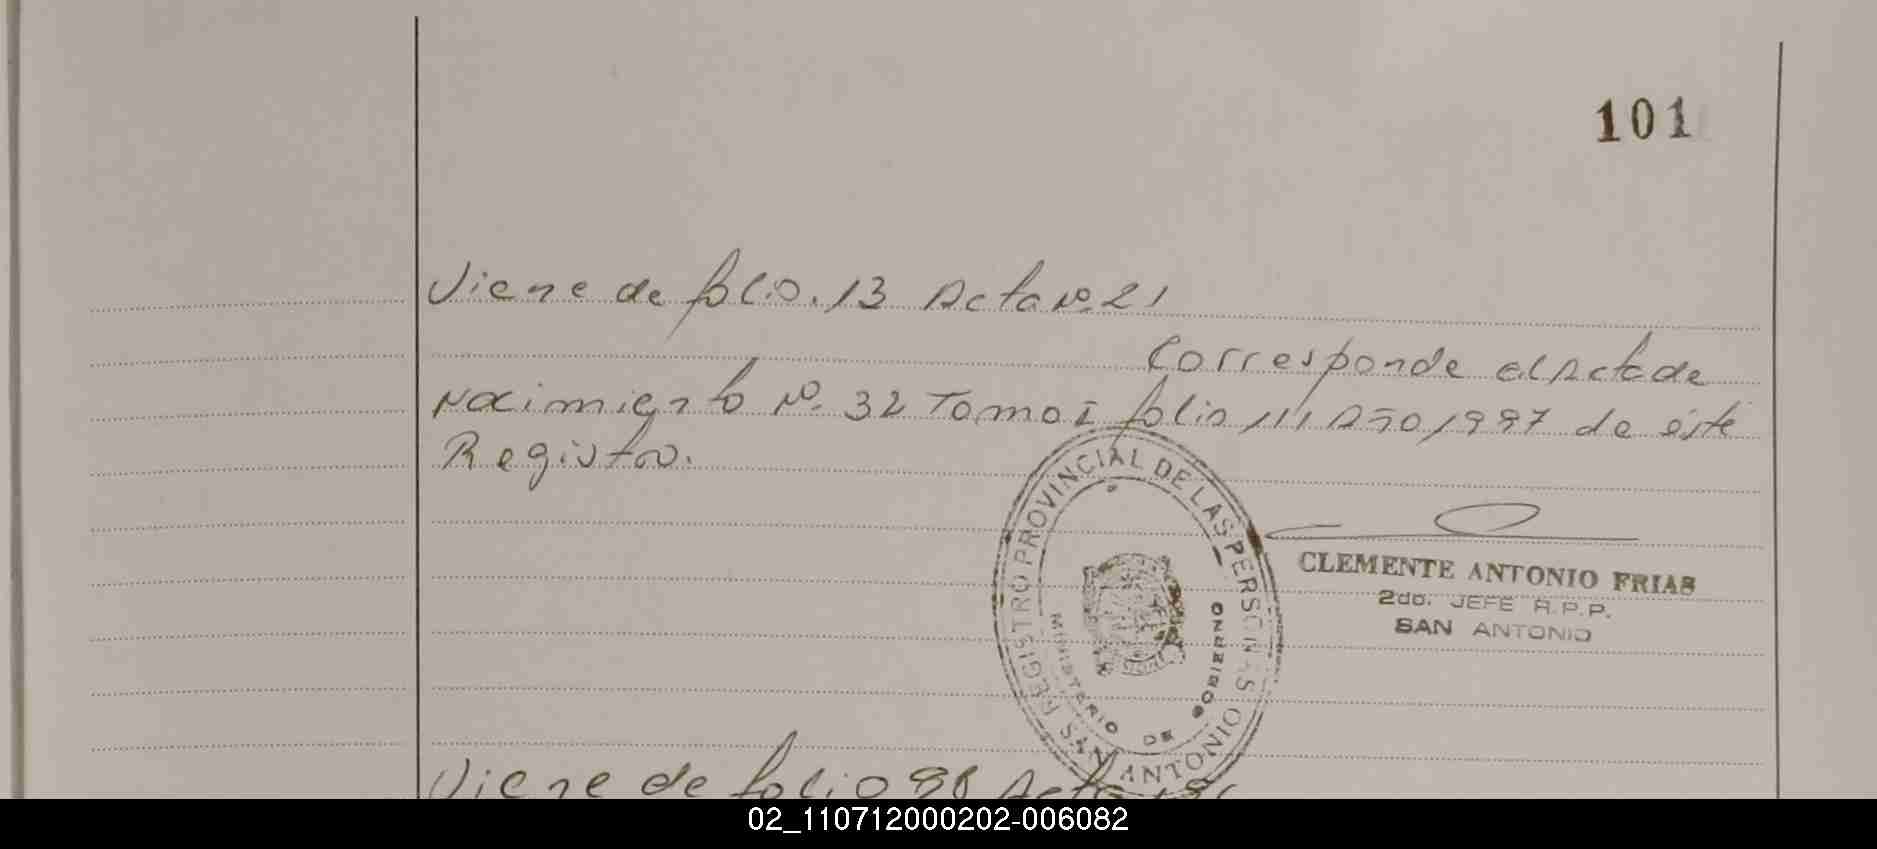 101
Viene de folio. 13 Acta Nº 21
Corresponde al Acta de
Nacimiento Nº. 32 Tomo I folio 111 Año 1997 de éste
Registro.
REGISTRO PROVINCIAL DE LAS PERSONAS
SAN ANTONIO
MINISTERIO DE GOBIERNO
CLEMENTE ANTONIO FRIAS
2do. JEFE R.P.P.
SAN ANTONIO
Viene de folio 98 Acta
02_110712000202-006082